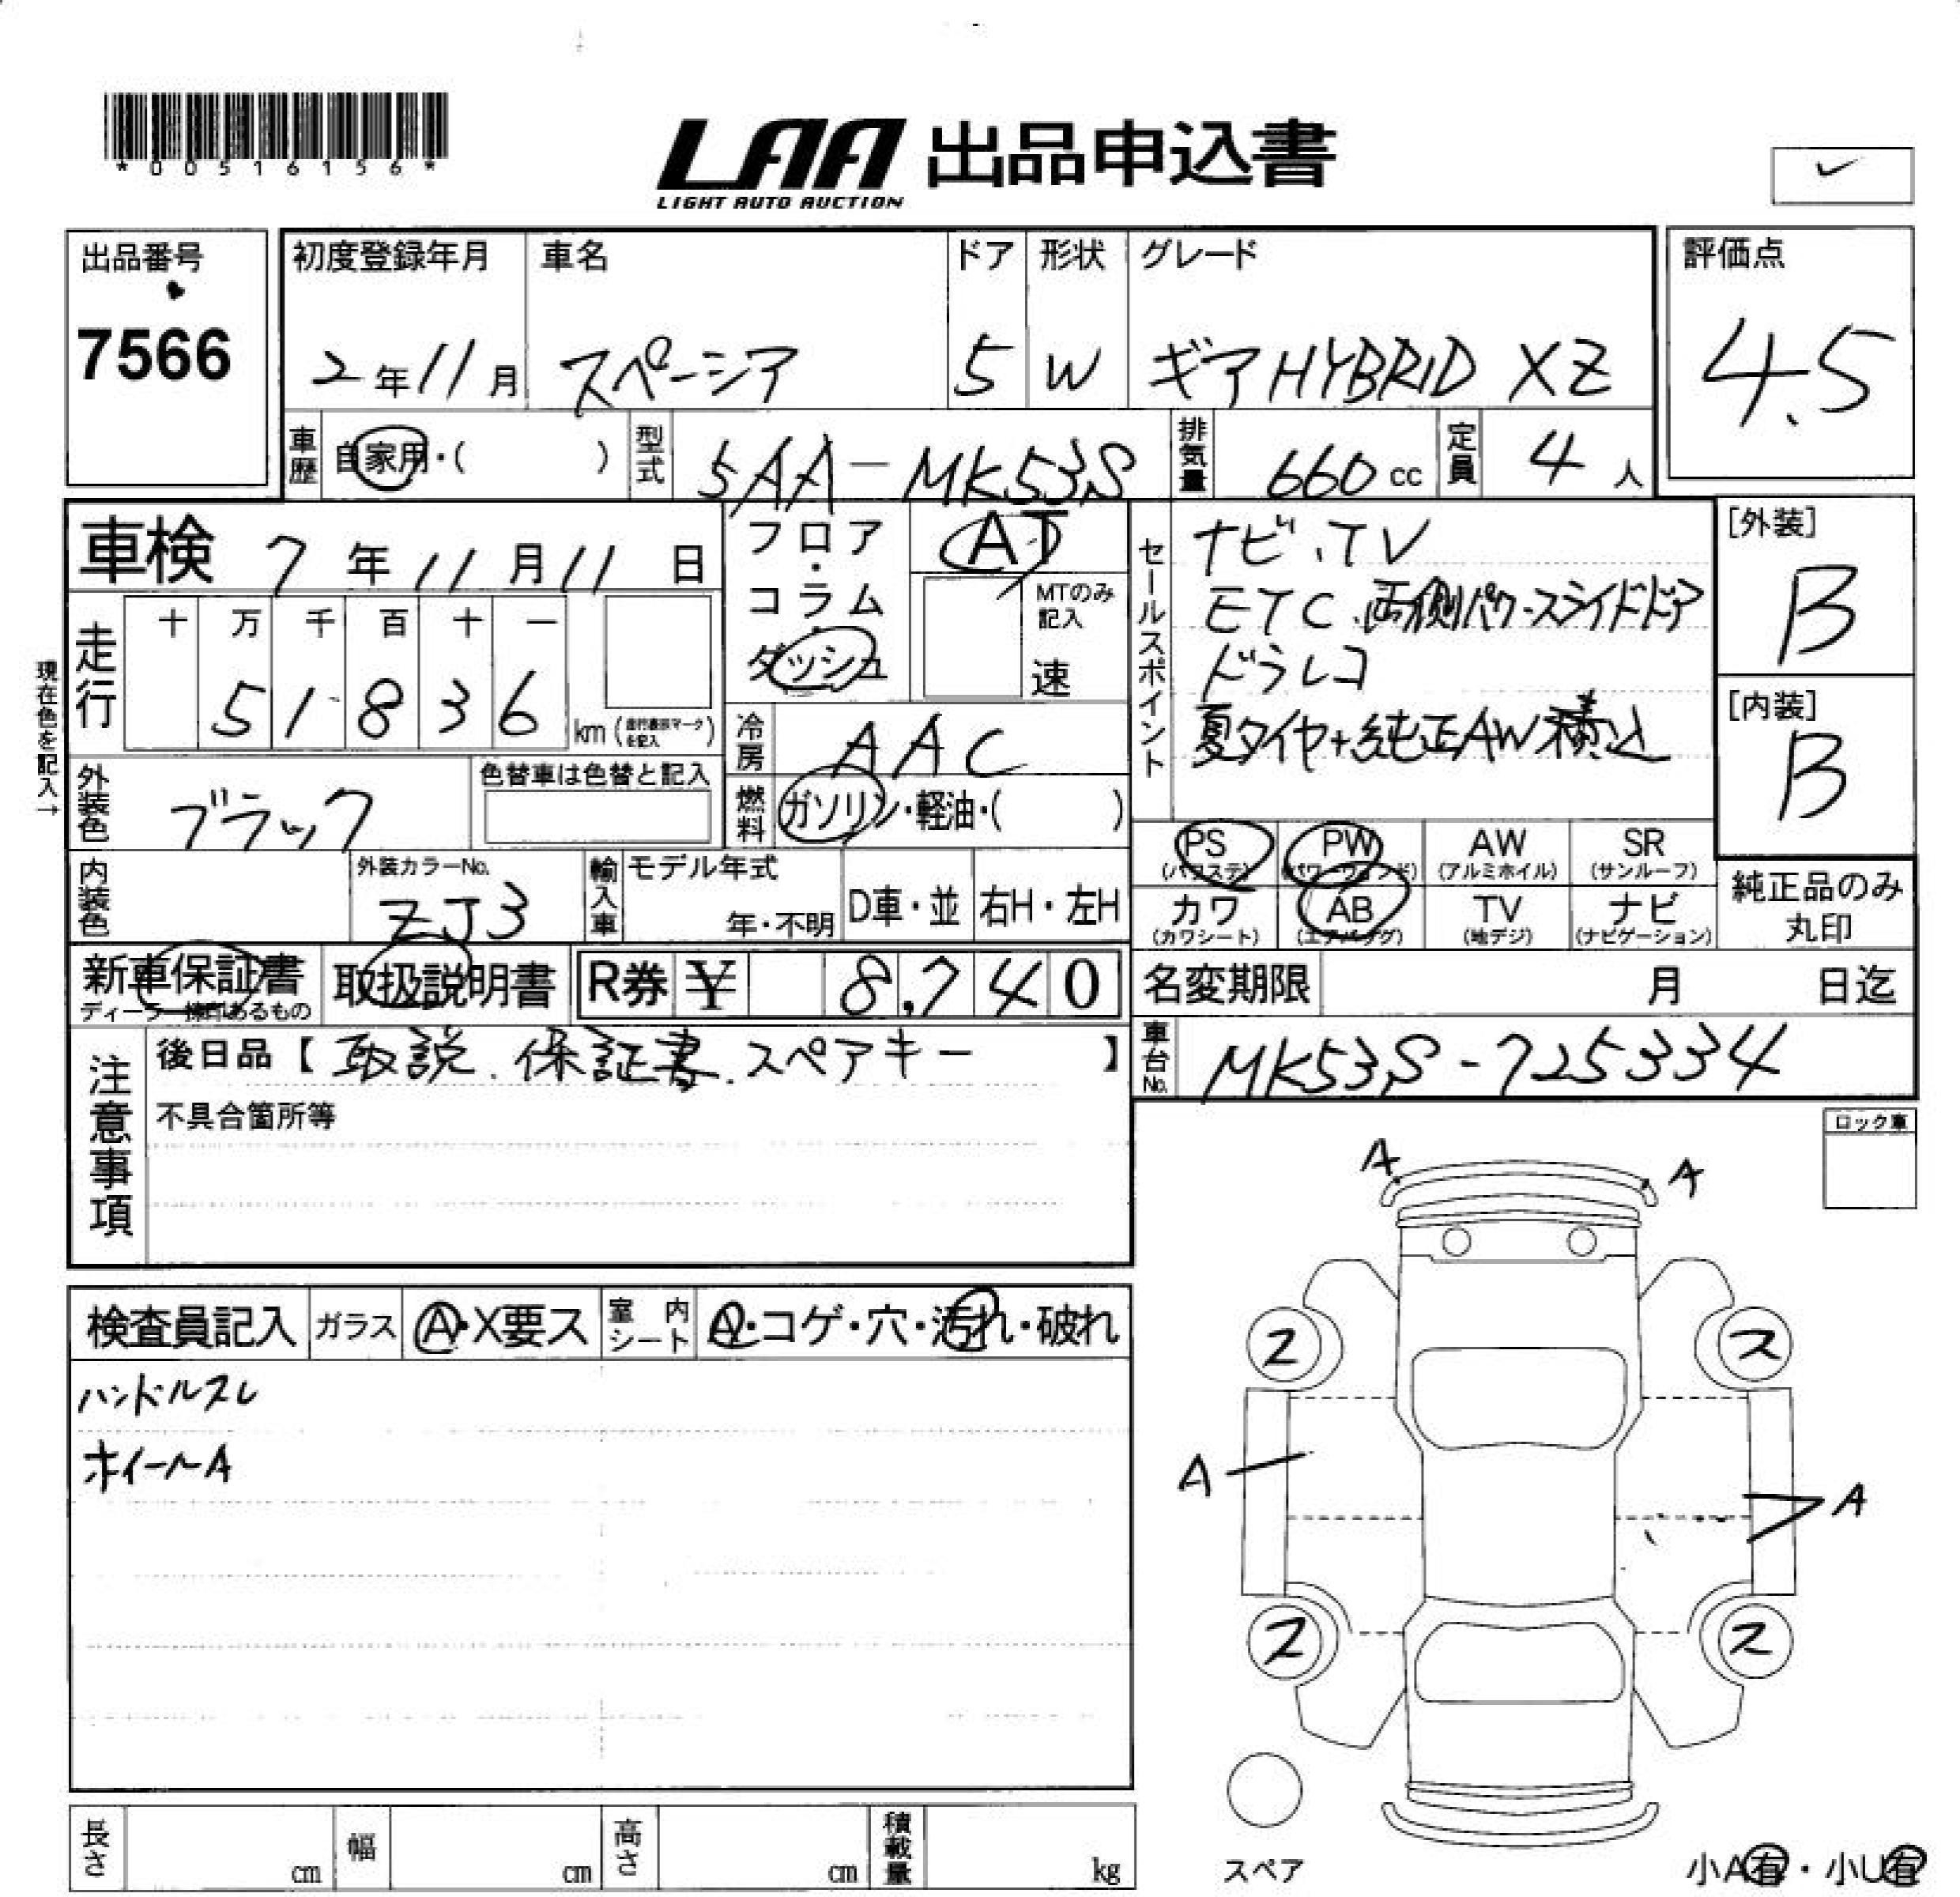 *00516156*
LAA 出品申込書
LIGHT AUTO AUCTION
出品番号
7566
初度登録年月
2年11月
車名
スペーシア
ドア
5
形状
W
グレード
ギア HYBRID XZ
評価点
4.5
車歴
自家用・( )
型式
5AA-MK53S
排気量
660cc
定員
4人
車検 7年11月11日
フロア・コラム・ダッシュ
AT
MTのみ記入
速
セールスポイント
ナビ、TV
ETC、両側パワースライドドア
ドラレコ
夏タイヤ+純正AW積込
[外装]
B
[内装]
B
現在色を記入→
走行
十 万 千 百 十 一
5 1 8 3 6
km (走行表示マークを記入)
冷房
AAC
外装色
ブラック
色替車は色替と記入
燃料
ガソリン・軽油・( )
PS (パワステ)
PW (パワーウインドウ)
AW (アルミホイル)
SR (サンルーフ)
カワ (カワシート)
AB (エアバッグ)
TV (地デジ)
ナビ (ナビゲーション)
純正品のみ丸印
内装色
外装カラーNo.
ZJ3
輸入車
モデル年式
年・不明
D車・並
右H・左H
新車保証書
取扱説明書
R券 ¥ 8,740
名変期限 月 日迄
車台No.
MK53S-725334
注意事項
後日品【取説、保証書、スペアキー】
不具合箇所等
ロック車
検査員記入
ガラス
A・X要ス
室内シート
A・コゲ・穴・汚れ・破れ
ハンドルスレ
ホイールA
A
A
ス
ス
A
A
ス
ス
スペア
小A有・小U有
長さ cm
幅 cm
高さ cm
積載量 kg